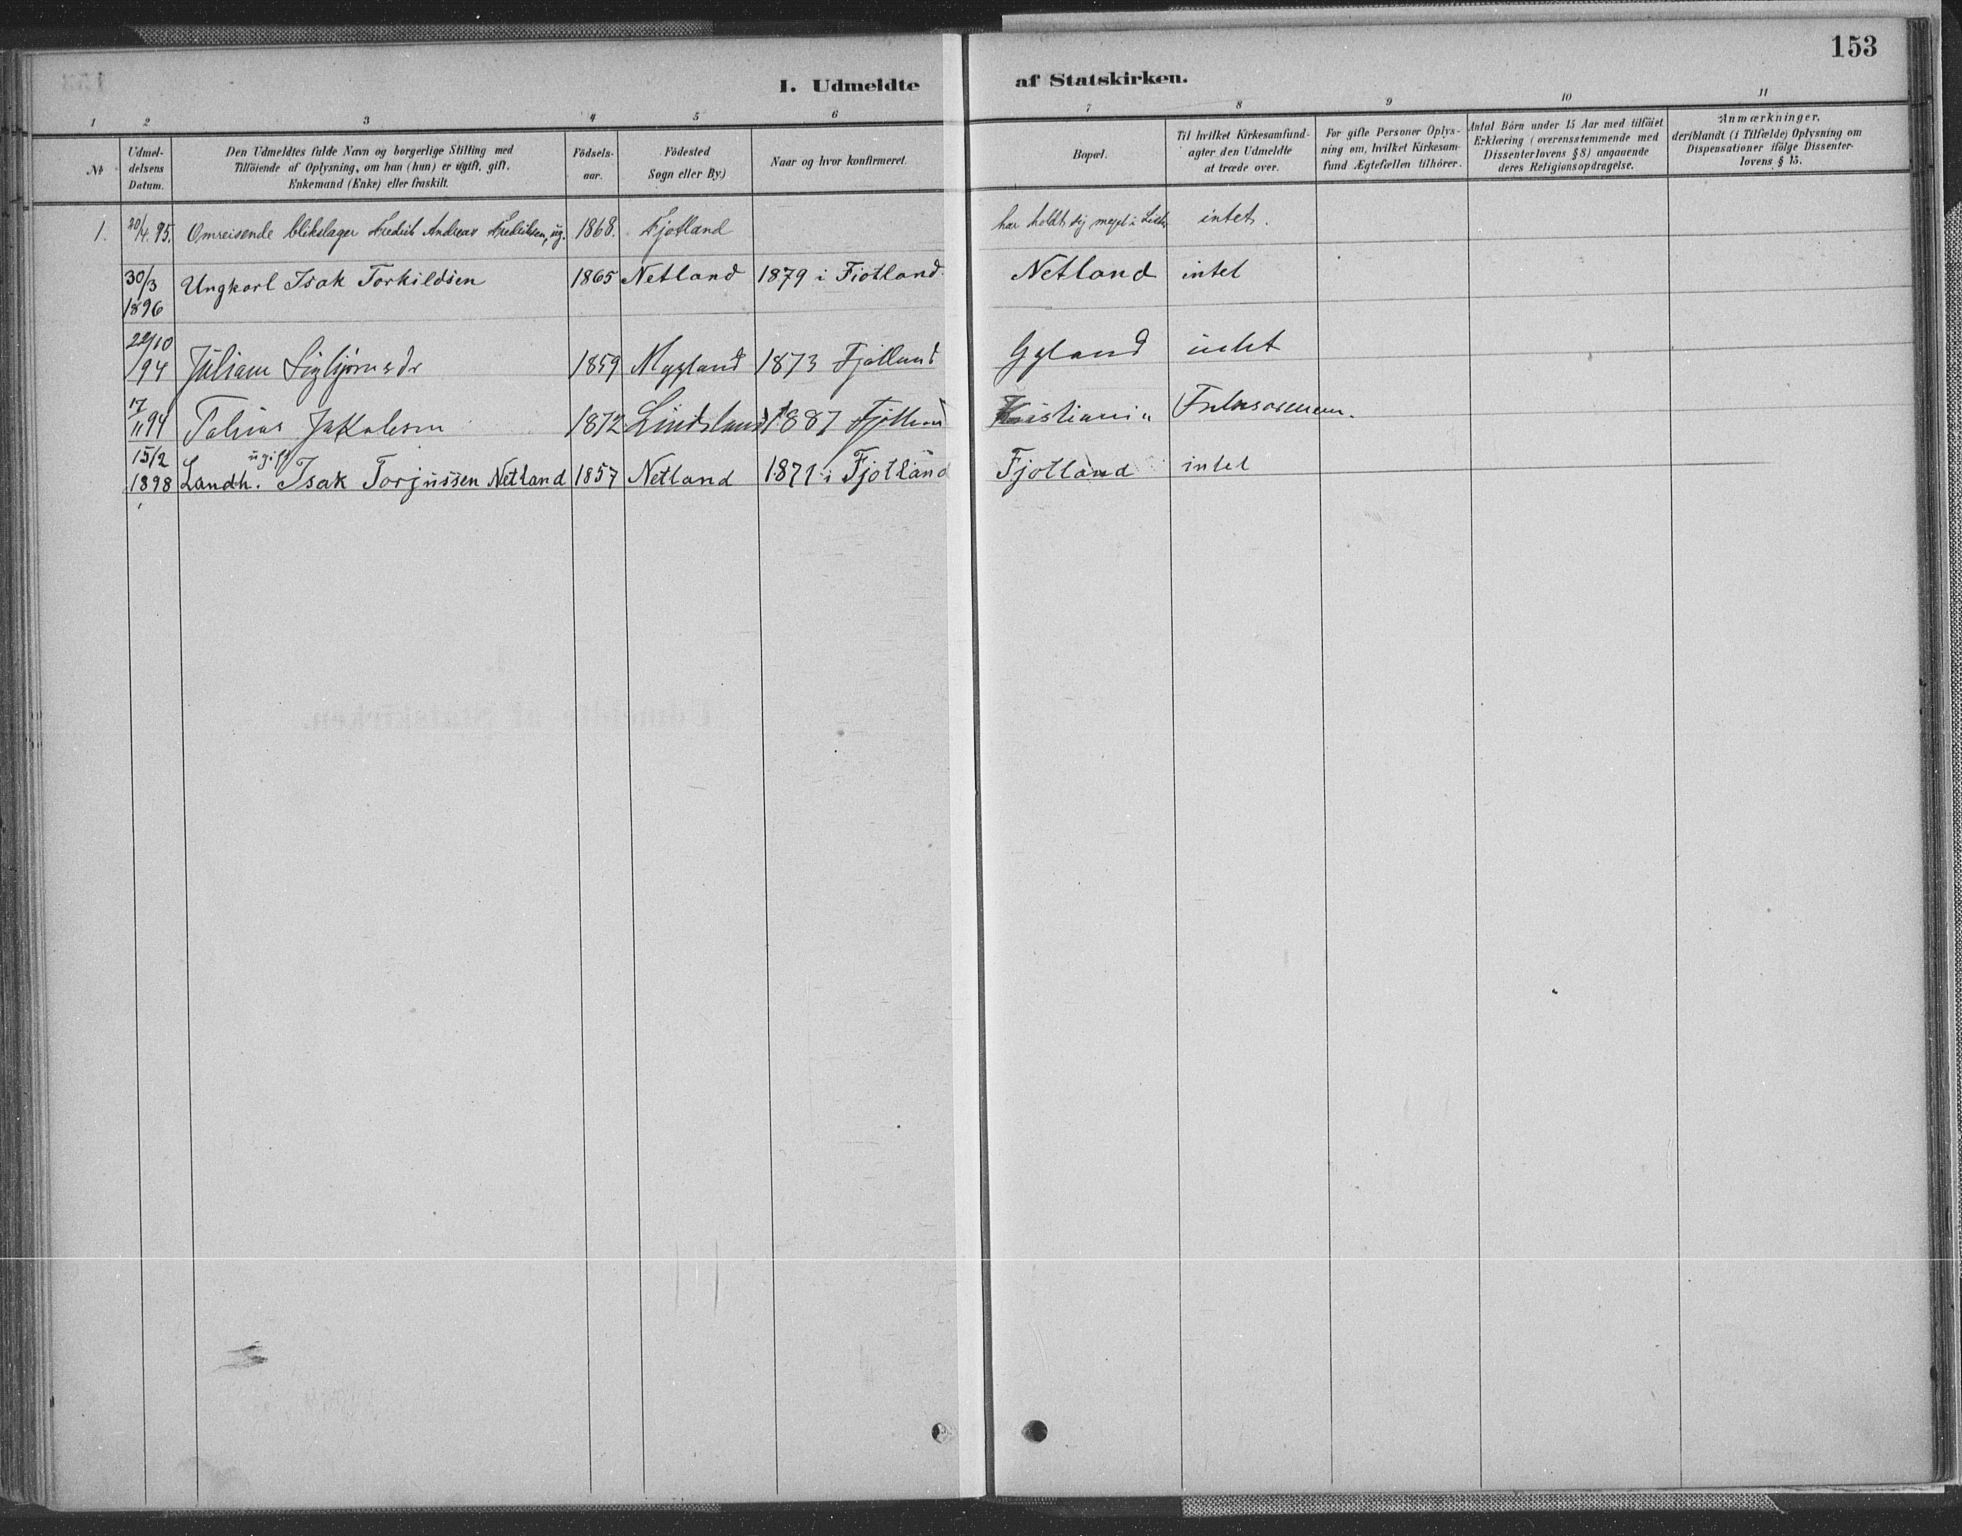 153
I. Udmeldte af Statskirken.
1 2 3 4 5 6 7 8 9 10 11
№
Udmel-
delsens
Datum.
Den Udmeldtes fulde Navn og borgerlige Stilling med
Tilföiende af Oplysning, om han (hun) er ugift, gift,
Enkemand (Enke) eller fraskilt.
Födsels-
aar.
Födested
Sogn eller By.)
Naar og hvor konfirmeret.
Bopæl.
Til hvilket Kirkesamfund-
agter den Udmeldte
at træde over.
For gifte Personer Oplys-
ning om, hvilket Kirkesam-
fund Ægtefællen tilhörer.
Antal Börn under 15 Aar med tilföiet
Erklæring (overensstemmende med
Dissenterlovens § 8) angaaende
deres Religionsopdragelse.
Anmærkninger,
deriblandt (i Tilfælde) Oplysning om
Dispensationer ifölge Dissenter-
lovens § 15.
1. 20/4. 95. Omreisende blikslager Fredrik Andreas Fredriksen, ug. 1868. Fjotland har holdt sig meget i intet.
30/3 Ungkarl Isak Torkildsen 1865 Netland 1879 i Fiotland. Netland intet
1896
22/10
/94 Juliane Sigbjørnsdr 1859 Mygland 1873 Fjotland Gyland intet
17
11 94 Tobias Jakobsen 1872 Lindsland 1887 Fjotland Kristiania
15/2 ugift
1898 Landh. Isak Torjussen Netland 1857 Netland 1871 i Fjotland Fjotland intet